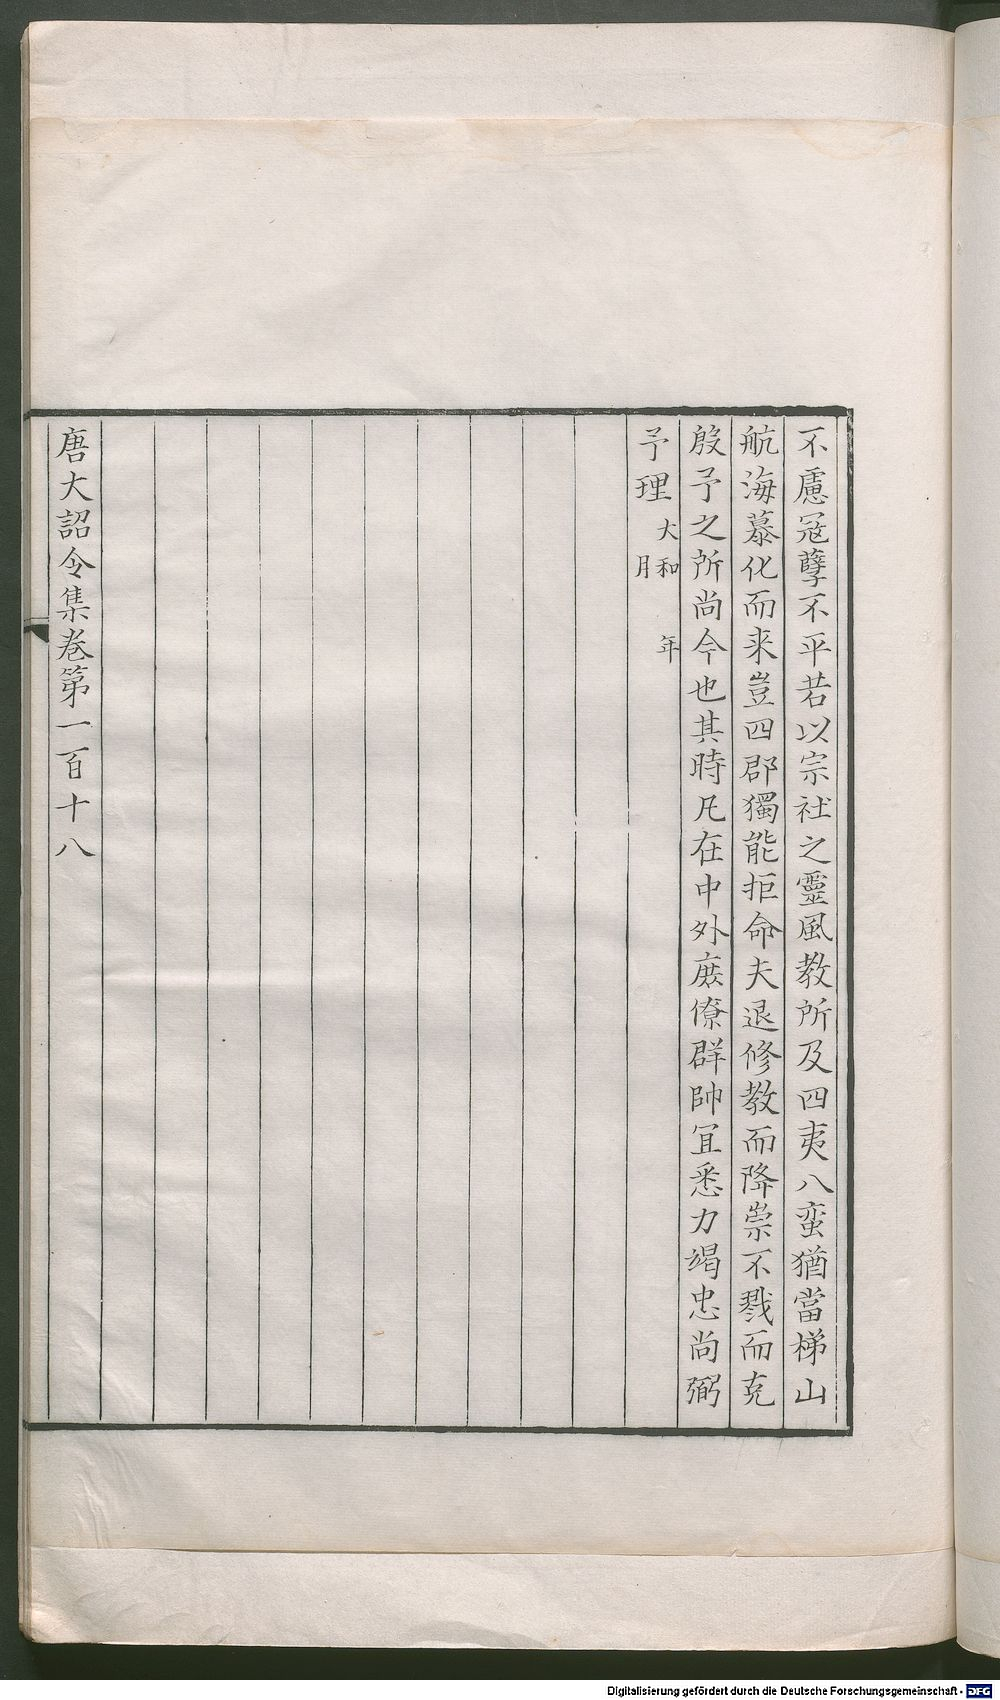 不慮冦孽不平若以宗社之靈風教所及四夷八蛮猶當梯山
航海慕化而来豈四郡獨能拒命夫退修教而降崇不戮而克
殷予之所尚今也其時凡在中外庶僚群帥冝悉力竭忠尚弼
予理 大和 年
月
唐大詔令集卷第一百十八
Digitalisierung gefördert durch die Deutsche Forschungsgemeinschaft - DFG